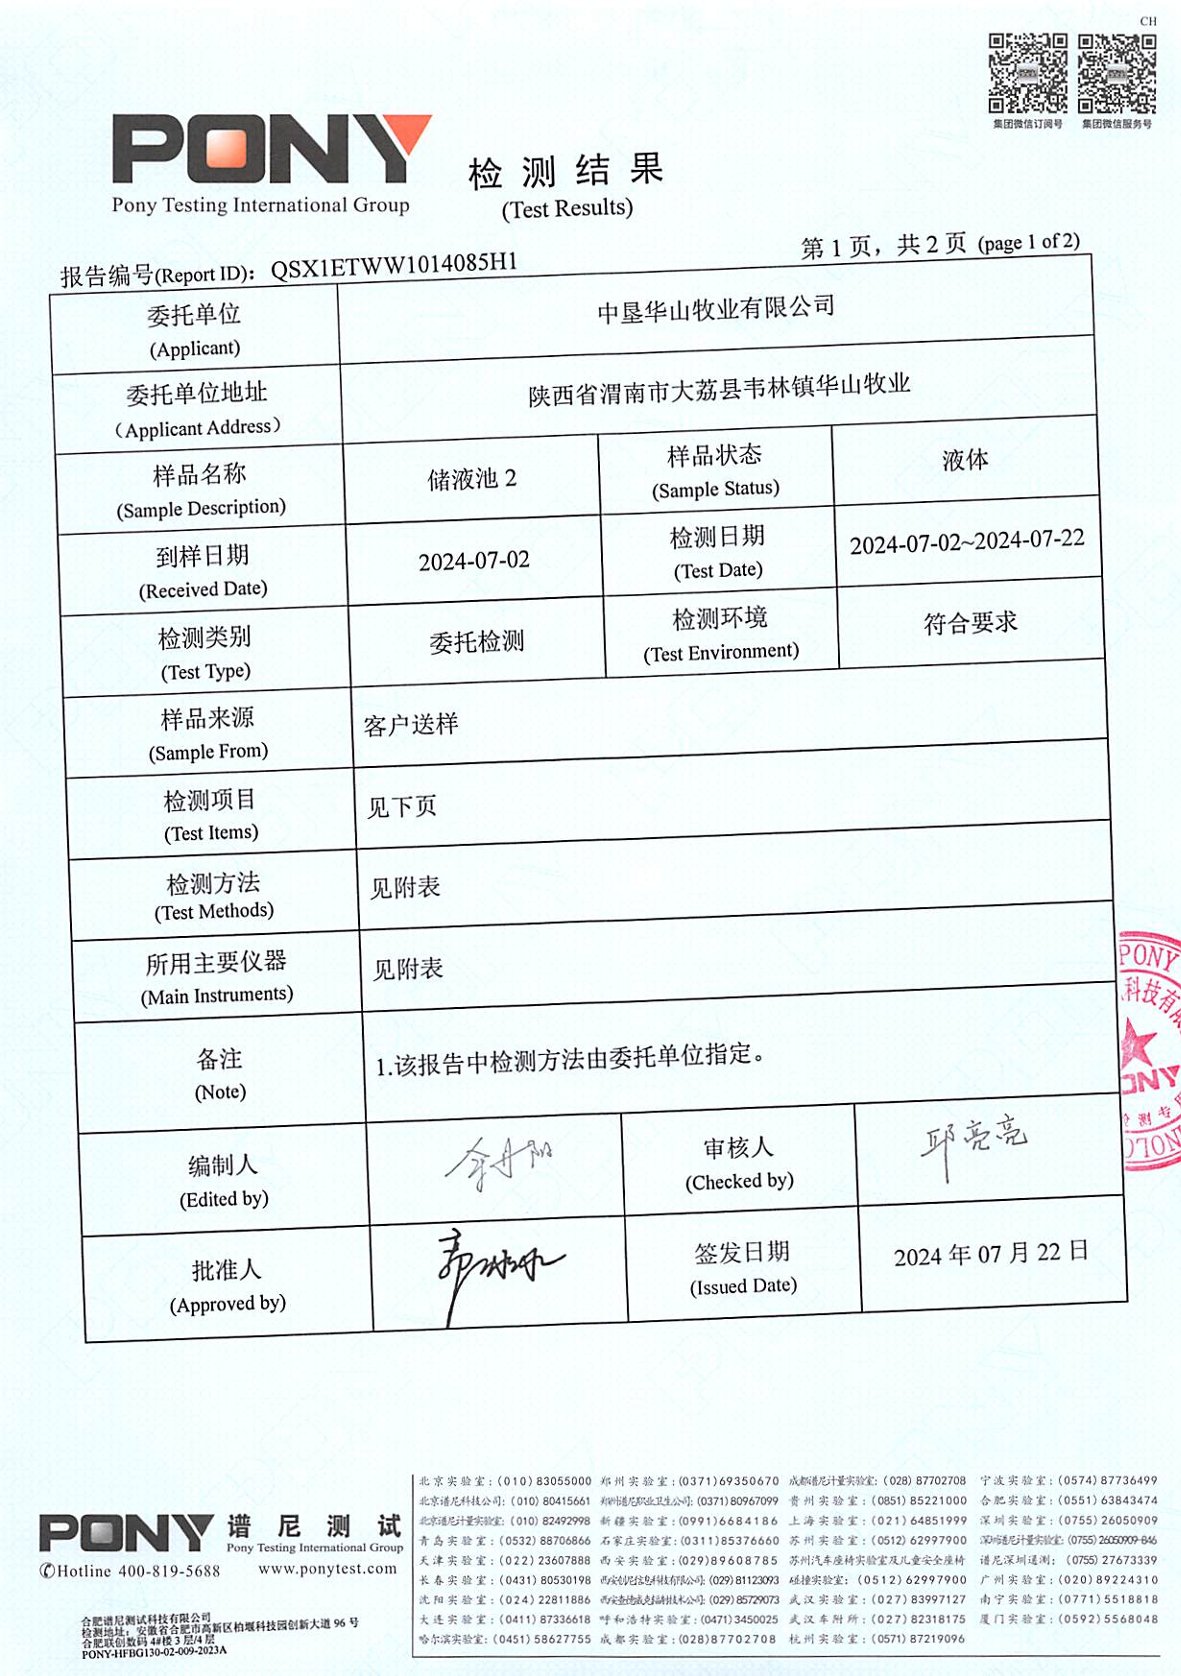 CH
集团微信订阅号 集团微信服务号
PONY
Pony Testing International Group
检测结果
(Test Results)
报告编号(Report ID): QSX1ETWW1014085H1
第 1 页，共 2 页 (page 1 of 2)
委托单位
(Applicant)
中垦华山牧业有限公司
委托单位地址
（Applicant Address）
陕西省渭南市大荔县韦林镇华山牧业
样品名称
(Sample Description)
储液池 2
样品状态
(Sample Status)
液体
到样日期
(Received Date)
2024-07-02
检测日期
(Test Date)
2024-07-02~2024-07-22
检测类别
(Test Type)
委托检测
检测环境
(Test Environment)
符合要求
样品来源
(Sample From)
客户送样
检测项目
(Test Items)
见下页
检测方法
(Test Methods)
见附表
所用主要仪器
(Main Instruments)
见附表
备注
(Note)
1.该报告中检测方法由委托单位指定。
编制人
(Edited by)
审核人
(Checked by)
邱亮亮
批准人
(Approved by)
签发日期
(Issued Date)
2024 年 07 月 22 日
PONY
科技有
PONY
PONY 谱尼测试
Pony Testing International Group
✆Hotline 400-819-5688 www.ponytest.com
合肥谱尼测试科技有限公司
检测地址：安徽省合肥市高新区柏堰科技园创新大道 96 号
合肥联创数码 4#楼 3 层/4 层
PONY-HFBG130-02-009-2023A
北京实验室：(010) 83055000 郑州实验室：(0371)69350670 成都谱尼计量实验室：(028) 87702708 宁波实验室：(0574) 87736499
北京谱尼科技公司：(010) 80415661 郑州谱尼职业卫生公司：(0371)80967099 贵州实验室：(0851) 85221000 合肥实验室：(0551) 63843474
北京谱尼计量实验室：(010) 82492998 新疆实验室：(0991)6684186 上海实验室：(021) 64851999 深圳实验室：(0755) 26050909
青岛实验室：(0532) 88706866 石家庄实验室：(0311)85376660 苏州实验室：(0512) 62997900 深圳谱尼计量实验室：(0755) 26050909-846
天津实验室：(022) 23607888 西安实验室：(029)89608785 苏州汽车座椅实验室及儿童安全座椅 谱尼深圳通测：(0755) 27673339
长春实验室：(0431) 80530198 西安创尼信息科技有限公司：(029) 81123093 碰撞实验室：(0512) 62997900 广州实验室：(020) 89224310
沈阳实验室：(024) 22811886 (029) 85729073 武汉实验室：(027) 83997127 南宁实验室：(0771) 5518818
大连实验室：(0411) 87336618 呼和浩特实验室：(0471) 3450025 武汉车附所：(027) 82318175 厦门实验室：(0592) 5568048
哈尔滨实验室：(0451) 58627755 成都实验室：(028)87702708 杭州实验室：(0571) 87219096